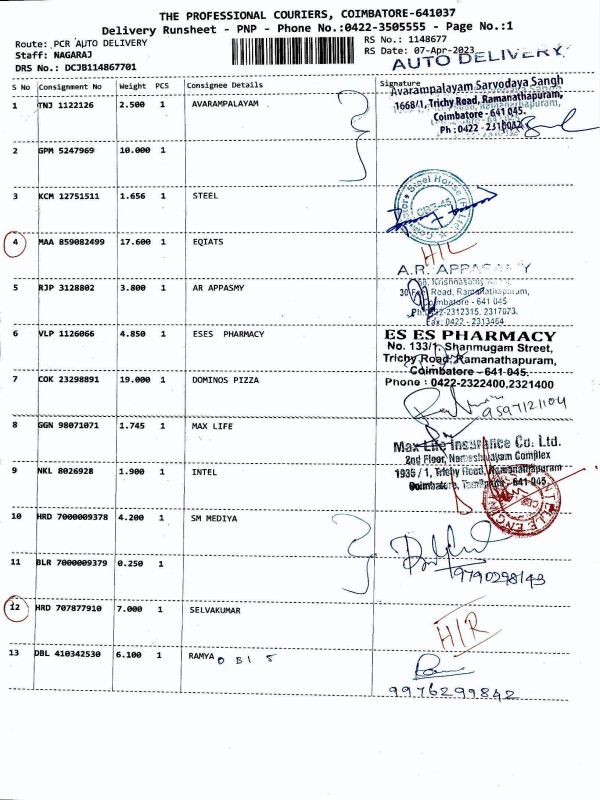 THE PROFESSIONAL COURIERS, COIMBATORE-641037
Delivery Runsheet - PNP - Phone No.:0422-3505555 - Page No.:1
Route: PCR AUTO DELIVERY
RS No.: 1148677
Staff: NAGARAJ
RS Date: 07-Apr-2023
DRS No.: DCJB114867701
AUTO DELIVERY
S No Consignment No Weight PCS Consignee Details Signature
1 TNJ 1122126 2.500 1 AVARAMPALAYAM
Avarampalayam Sarvodaya Sangh
1668/1, Trichy Road, Ramanathapuram,
Coimbatore - 641 045.
Ph : 0422 -
2 GPM 5247969 10.000 1
3 KCM 12751511 1.656 1 STEEL
Steel House
CBE-45
4 MAA 859082499 17.600 1 EQIATS
H/L
A.R. APPASAMY
5 RJP 3128802 3.800 1 AR APPASMY
Road, Ramanathapuram,
Coimbatore - 641 045
Ph: 0422-2312315, 2317073,
Fax: 0422 - 2313464
6 VLP 1126066 4.850 1 ESES PHARMACY
ES ES PHARMACY
No. 133/1, Shanmugam Street,
Trichy Road, Ramanathapuram,
Coimbatore - 641 045.
Phone : 0422-2322400,2321400
7 COK 23298891 19.000 1 DOMINOS PIZZA
9597121104
8 GGN 98071071 1.745 1 MAX LIFE
Max Life Insurance Co. Ltd.
2nd Floor, Complex
1935 / 1, Trichy Road, Ramanathapuram
Coimbatore, 641 045
9 NKL 8026928 1.900 1 INTEL
10 HRD 7000009378 4.200 1 SM MEDIYA
11 BLR 7000009379 0.250 1
9790298143
12 HRD 707877910 7.000 1 SELVAKUMAR
H/R
13 DBL 410342530 6.100 1 RAMYA
9976299842